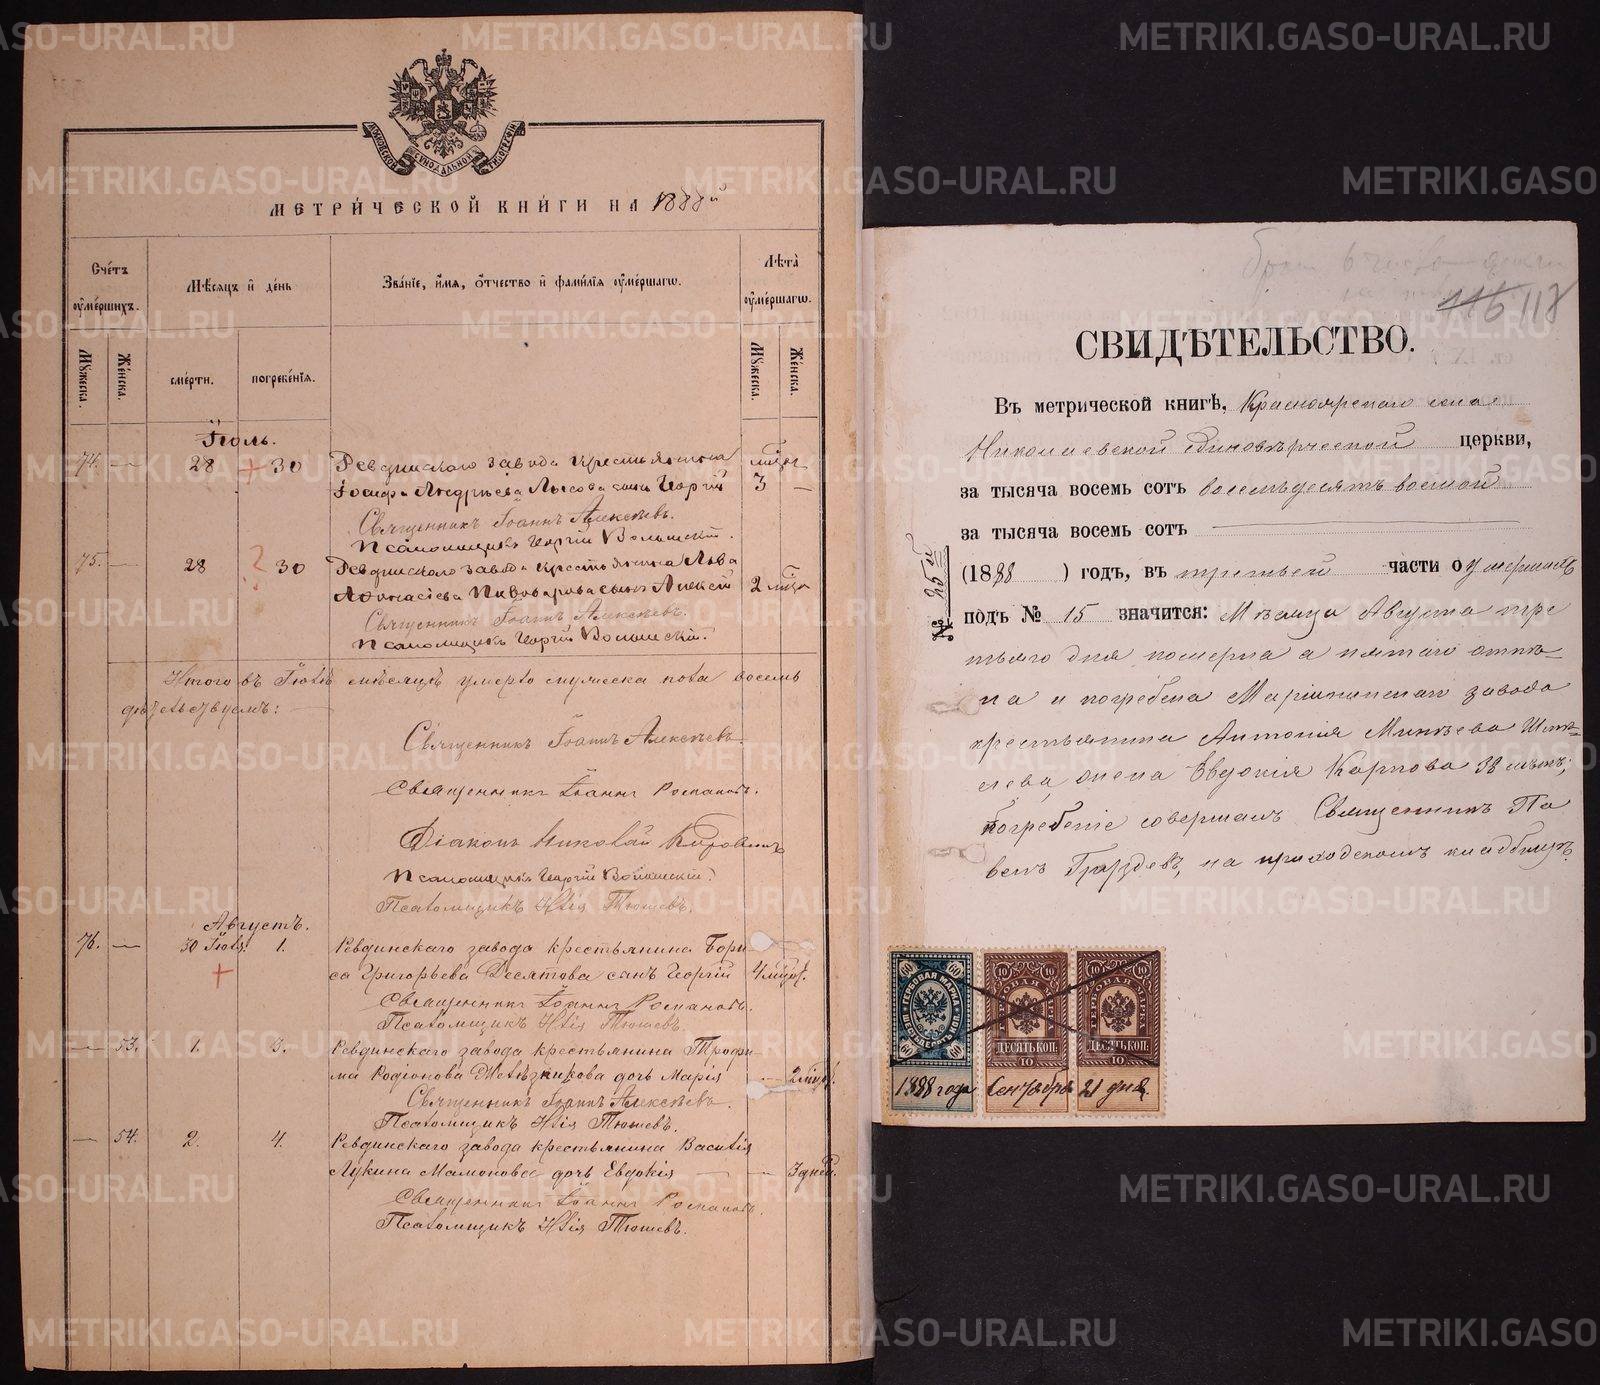 МОСКОВСКОЙ СѴНОДАЛЬНОЙ ТИПОГРАФІИ
МЕТРИ́ЧЕСКОЙ КНИ́ГИ НА 1888й
Сче́тъ оу҆ме́ршихъ.
Мѣ́сяцъ и҆ де́нь
Зва́нїе, и҆́мя, ѻ҆́тчество и҆ фами́лїя оу҆ме́ршагѡ.
Лѣ́та оу҆ме́ршагѡ.
Мꙋ́жеска.
Же́нска.
сме́рти.
погребе́нїя.
Мꙋ́жеска.
Же́нска.
Іюль.
74. — 28 + 30 Ревдинскаго завода крестьянина мѣсяц
Іосифа Андрѣева Лысова сынъ Георгій 3 —
Священникъ Іоаннъ Алексѣевъ.
Псаломщикъ Георгій Волынскій.
75. — 28 ? 30 Ревдинскаго завода крестьянина Льва
Афонасіева Пивоварова сынъ Алексѣй 2 мѣсяц
Священникъ Іоаннъ Алексѣевъ.
Псаломщикъ Георгій Волынскій.
Итого въ Іюлѣ мѣсяцѣ умерло мужеска пола восемь
Священникъ Іоаннъ Алексѣевъ.
Священникъ Іоаннъ Романовъ.
Діаконъ Николай
Псаломщикъ Георгій Волынскій.
Псаломщикъ Илія Тюшевъ.
Августъ.
76. — 30 Іюля 1. Ревдинскаго завода крестьянина Бори-
+ са Григорьева Десятова сынъ Георгій 4 мѣсяц.
Священникъ Іоаннъ Романовъ.
Псаломщикъ Илія Тюшевъ.
— 53. 1. 3. Ревдинскаго завода крестьянина Трофи-
ма Родіонова Желѣзникова дочь Марія — 2 мѣсяц.
Священникъ Іоаннъ Алексѣевъ.
Псаломщикъ Илія Тюшевъ.
— 54. 2. 4. Ревдинскаго завода крестьянина Василія
Лукина Мамонова дочь Евдокія — — 3 дней.
Священникъ Іоаннъ Романовъ.
Псаломщикъ Илія Тюшевъ.
116 118
СВИДѢТЕЛЬСТВО.
Въ метрической книгѣ, Красноярскаго села
Николаевской единовѣрческой церкви,
за тысяча восемь сотъ восемьдесятъ восьмой
за тысяча восемь сотъ —
(1888 ) годъ, въ третьей части о умершихъ
№ 25й
подъ № 15 значится: Мѣсяца Августа тре
тьяго дня померла а пятаго отпѣ-
та и погребена Маріинскаго завода
крестьянина Антонія Минѣева
жена Евдокія Карпова 38 лѣтъ;
погребеніе совершалъ Священникъ Па
велъ Груздевъ, на приходскомъ кладбищѣ.
60 60
ГЕРБОВАЯ МАРКА
ШЕСТЬДЕСЯТЪ КОП.
60 60
10 10
ГЕРБОВАЯ МАРКА
ДЕСЯТЬ КОП.
10
10 10
ГЕРБОВАЯ МАРКА
ДЕСЯТЬ КОП.
10
1888 года Сентября 21 дня.
METRIKI.GASO-URAL.RU